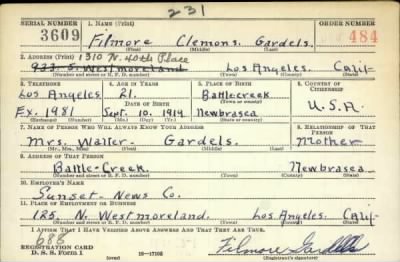 231
SERIAL NUMBER 1. NAME (Print) ORDER NUMBER
3609 Filmore Clemons. Gardels. 484
(First) (Middle) (Last)
2. ADDRESS (Print) 1310 N. 40th Place
933 S. Westmoreland Los Angeles. Calif
(Number and street or R. F. D. number) (Town) (County) (State)
3. TELEPHONE 4. AGE IN YEARS 5. PLACE OF BIRTH 6. COUNTRY OF CITIZENSHIP
Los Angeles 21. Battlecreek
DATE OF BIRTH (Town or county) U.S.A.
Ex. 1981 Sept. 10. 1919 Newbrasea
(Mo.) (Day) (Yr.) (State or country)
7. NAME OF PERSON WHO WILL ALWAYS KNOW YOUR ADDRESS 8. RELATIONSHIP OF THAT PERSON
Mrs. Walter- Gardels. Mother
(Mr., Mrs., Miss) (First) (Middle) (Last)
9. ADDRESS OF THAT PERSON
Battle-Creek. Newbrasea.
(Number and street or R. F. D. number) (Town) (County) (State)
10. EMPLOYER'S NAME
Sunset-News Co.
11. PLACE OF EMPLOYMENT OR BUSINESS
185. N. Westmoreland. Los Angeles. Calif
(Number and street or R. F. D. number) (Town) (County) (State)
I AFFIRM THAT I HAVE VERIFIED ABOVE ANSWERS AND THAT THEY ARE TRUE.
686
REGISTRATION CARD
D. S. S. FORM 1 16-17105 Filmore Gardels
(Registrant's signature)